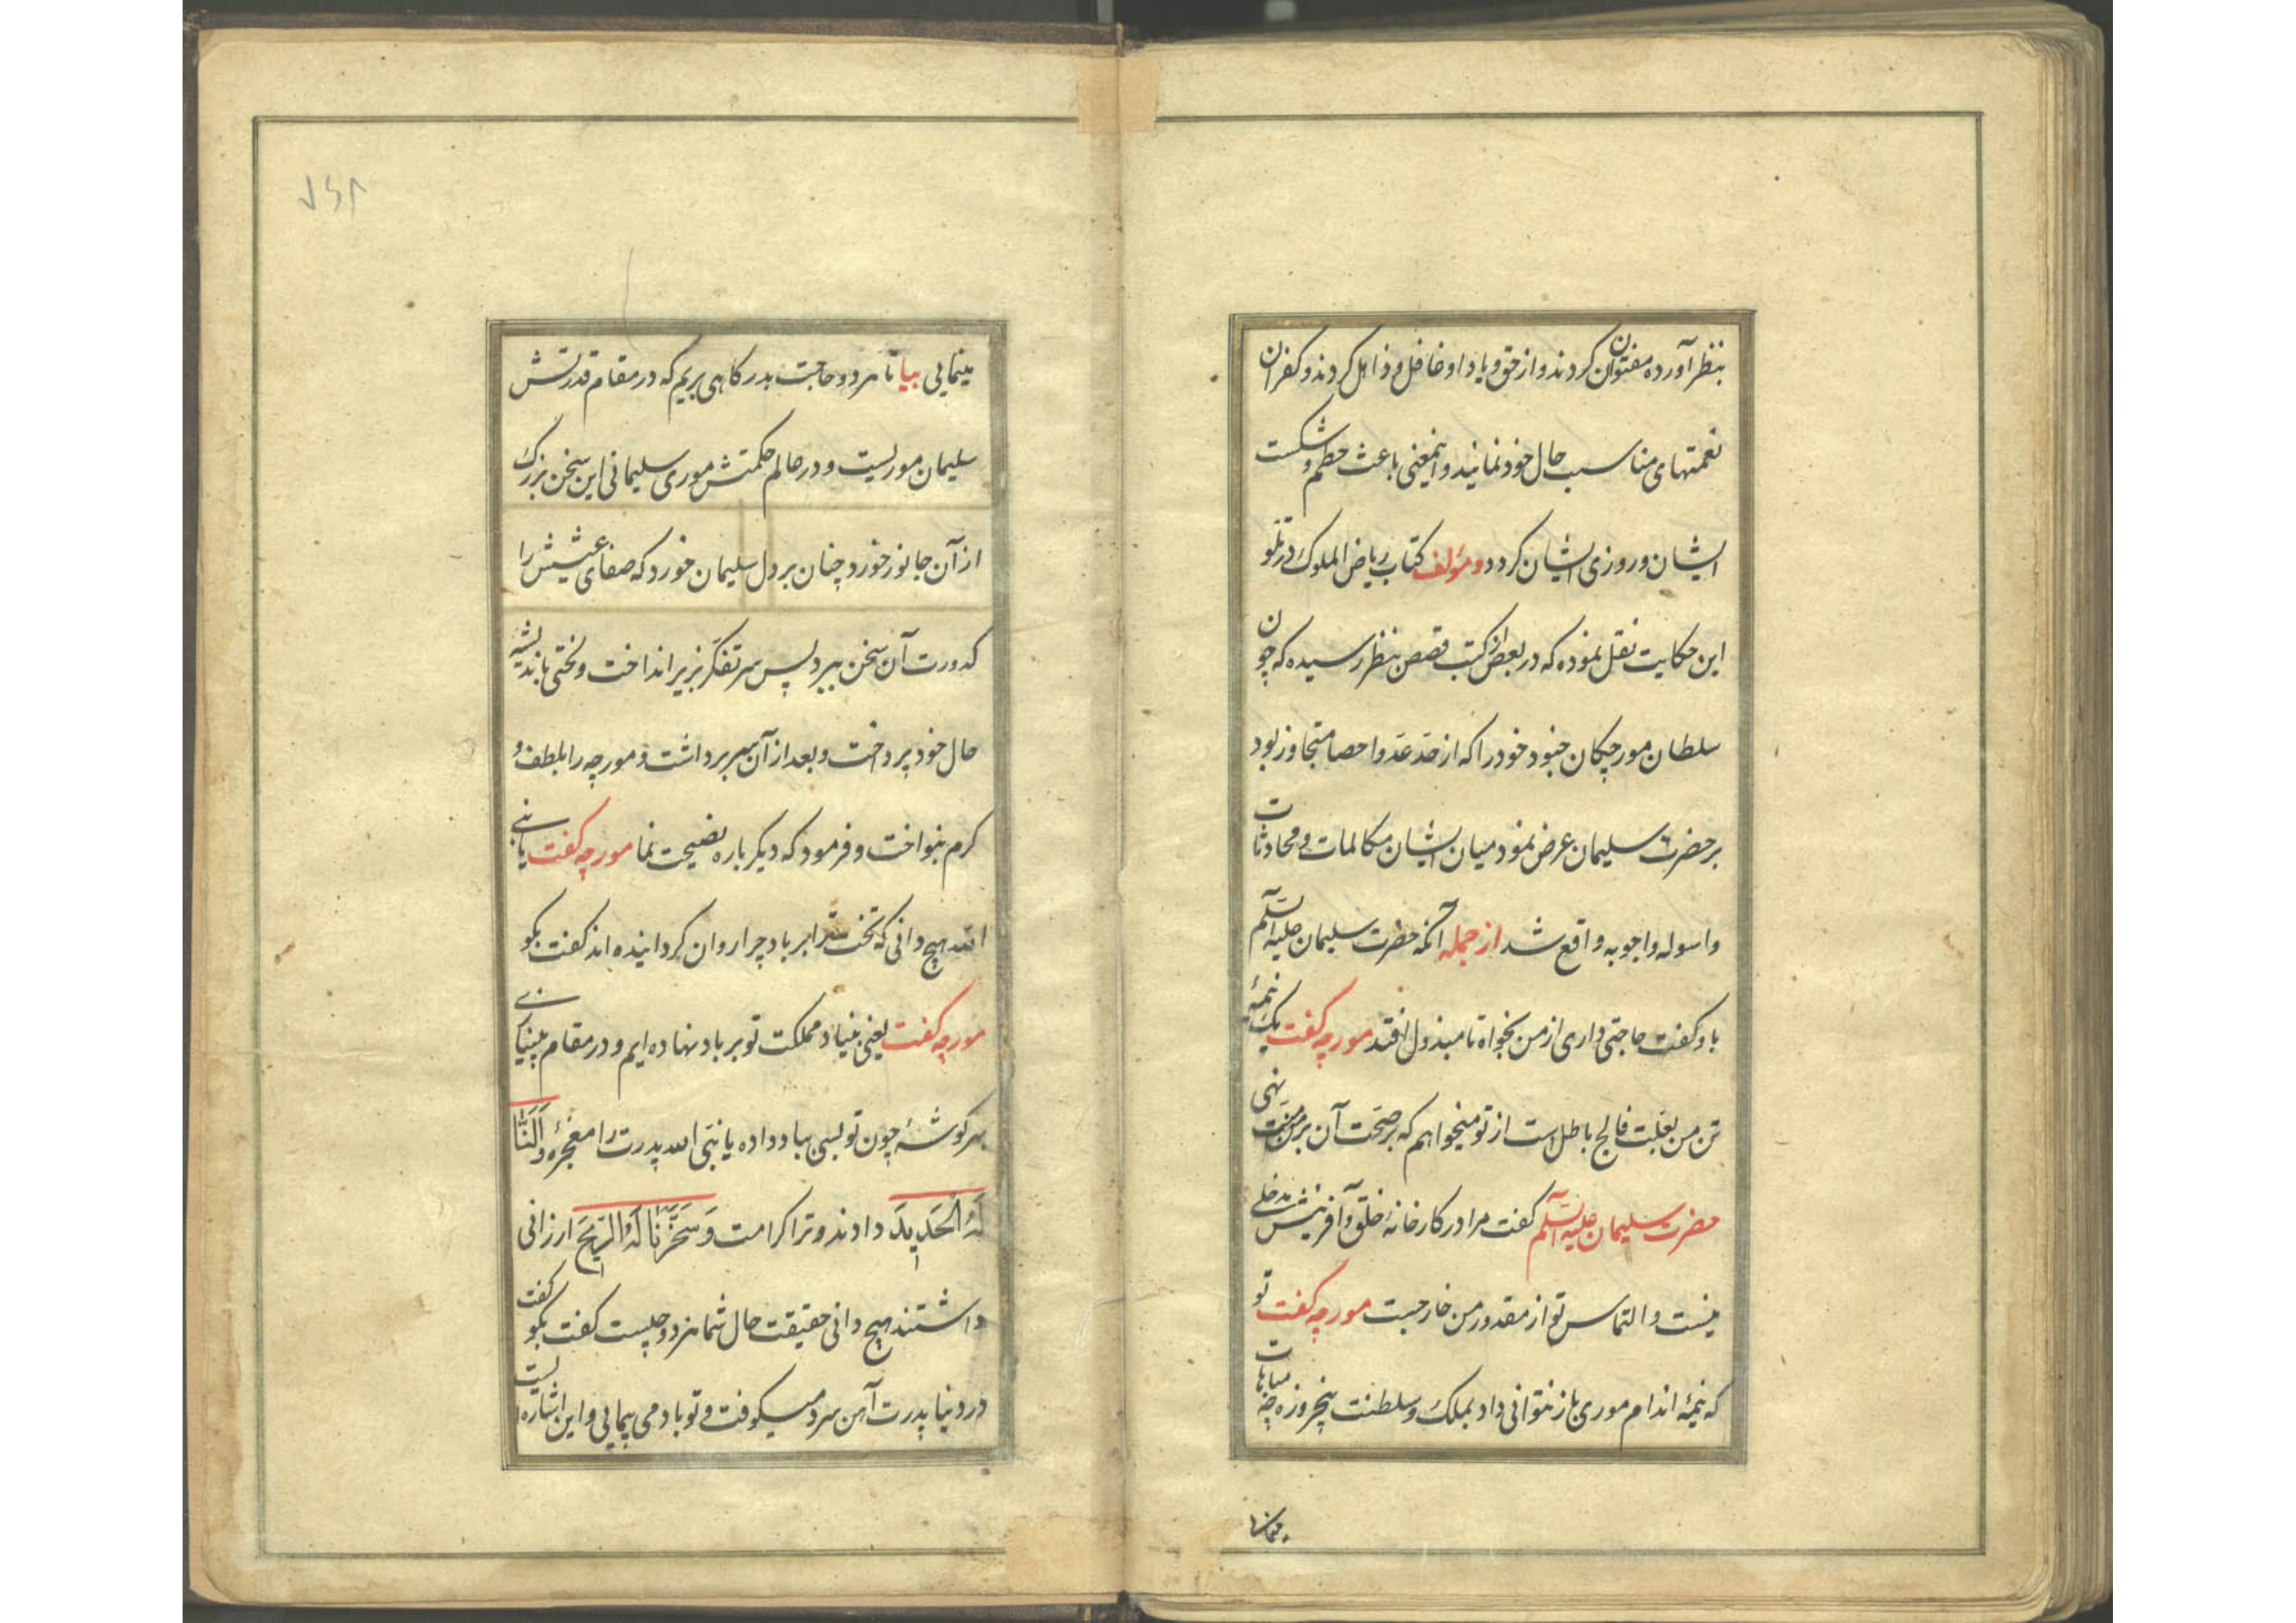 بنظر آورده مفتون کردند و از حق و یاد او غافل و ذاهل کردند و کفران
نعمتهای مناسب حال خود نمایند و اینمعنی باعث حطم و شکست
ایشان و روزی ایشان کردد و مؤلف کتاب ریاض الملوک در تلو
این حکایت نقل نموده که در بعض از کتب قصص بنظر رسیده که چون
سلطان مورچکان جنود خود را که از حد عد و احصا متجاوز بود
بر حضرت سلیمان عرض نمود میان ایشان مکالمات و محادثات
و اسوله و اجوبه واقع شد از جمله آنکه حضرت سلیمان علیه السلم
باو کفت حاجتی داری از من بخواه تا مبذول افتد مورچه کفت یک نیمه
تن من بعلت فالج باطل است از تو میخواهم که بر صحت آن بر من منت نهی
حضرت سلیمان علیه السلم کفت مرا در کارخانه خلق و آفرینش مدخلی
نیست و التماس تو از مقدور من خارجست مورچه کفت تو
که نیمه اندام موری باز نتوانی داد بملک و سلطنت پنجروزه چه مباهات
مینمائی بیا تا هر دو حاجت بدرکاهی بریم که در مقام قدرتش
سلیمان موریست و در عالم حکمتش موری سلیمانی این سخن بزرک
از آن جانور خورد چنان بر دل سلیمان خورد که صفای عیشش را
کدورت آن سخن ببرد پس سر تفکر بزیر انداخت و لختی باندیشه
حال خود پرداخت و بعد از آن سر برداشت و مورچه را بلطف و
کرم بنواخت و فرمود که دیکر باره نصیحت نما مورچه کفت یا نبی
الله هیچ دانی که تخت ترا بر باد چرا روان کردانیده اند کفت بکو
مورچه کفت یعنی بنیاد مملکت تو بر باد نهاده ایم و در مقام بینیازی
بهر کوشه چون تو بسی بباد داده یا نبی الله پدرت را معجزه وَاَلَنَّا
لَهُ الْحَدِیدَ دادند و ترا کرامت وَسَخَّرْنَا لَهُ الرِّیحَ ارزانی
داشتند هیچ دانی حقیقت حال شما هر دو چیست کفت بکو کفت
در دنیا پدرت آهن سرد میکوفت و تو باد می پیمائی و این اشاره ایست